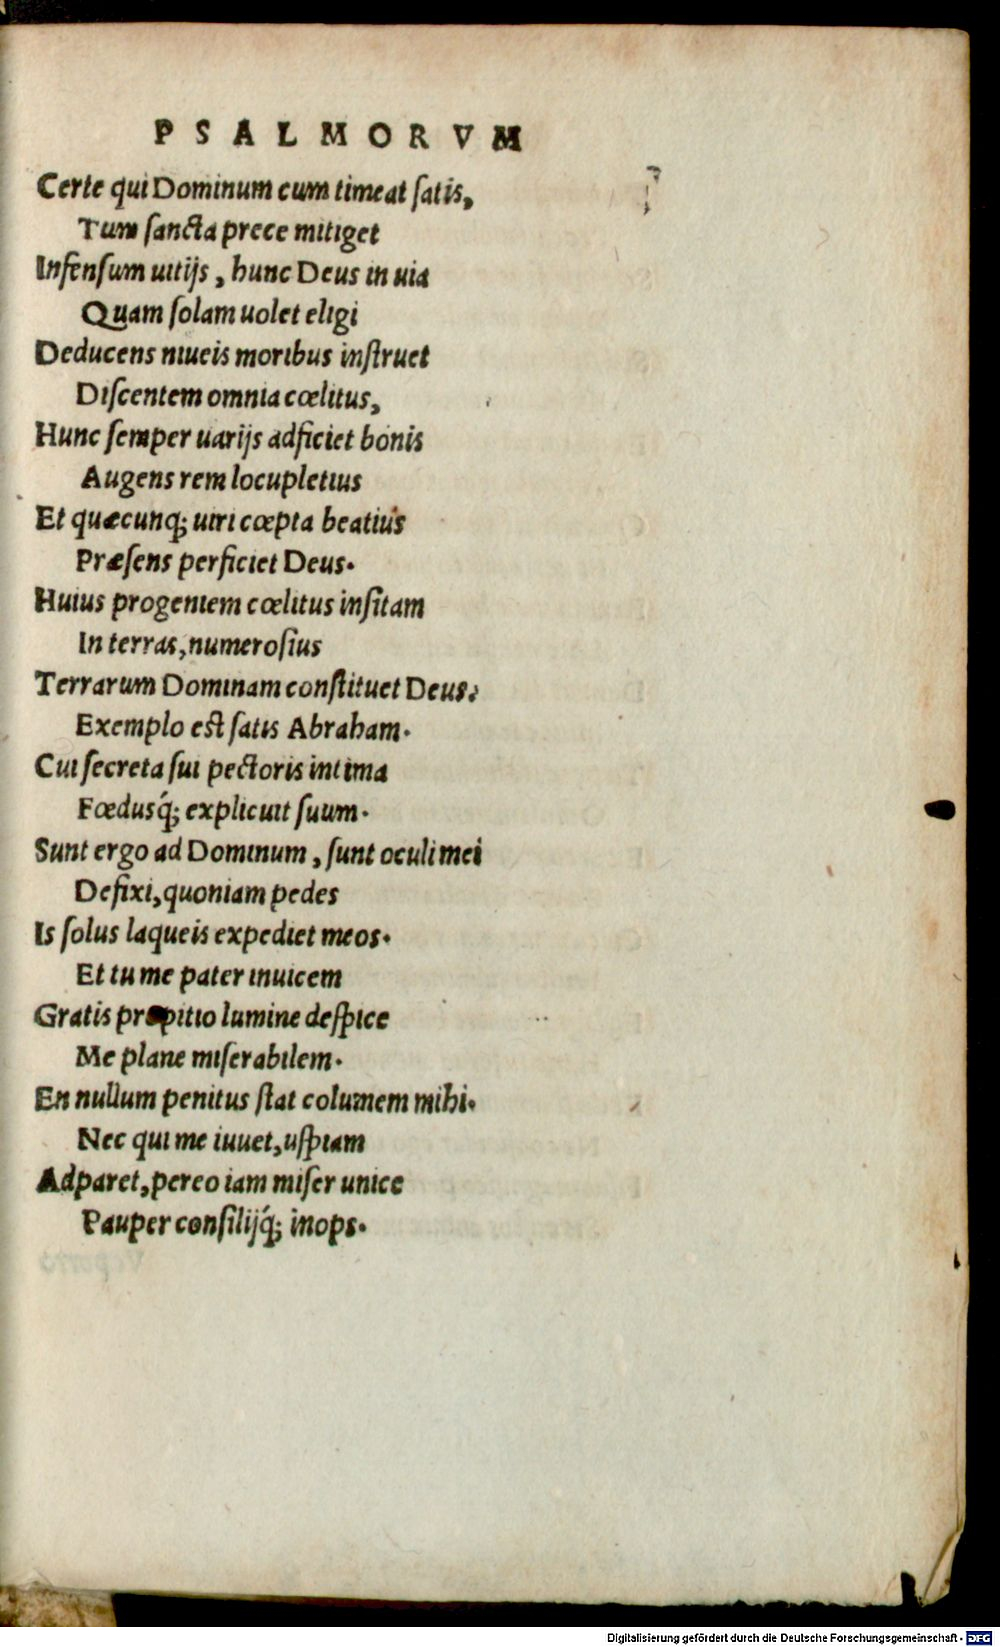 PSALMORVM
Certe qui Dominum cum timeat ſatis,
Tum ſancta prece mitiget
Infenſum uitijs, hunc Deus in uia
Quam ſolam uolet eligi
Deducens niueis moribus inſtruet
Diſcentem omnia cœlitus,
Hunc ſemper uarijs adficiet bonis
Augens rem locupletius
Et quæcunq; uiri cœpta beatius
Præſens perficiet Deus.
Huius progeniem cœlitus inſitam
In terras, numeroſius
Terrarum Dominam conſtituet Deus.
Exemplo est ſatis Abraham.
Cui ſecreta ſui pectoris intima
Fœdusq́; explicuit ſuum.
Sunt ergo ad Dominum, ſunt oculi mei
Defixi, quoniam pedes
Is ſolus laqueis expediet meos.
Et tu me pater inuicem
Gratis propitio lumine deſpice
Me plane miſerabilem.
En nullum penitus ſtat columem mihi.
Nec qui me iuuet, uſpiam
Adparet, pereo iam miſer unice
Pauper conſilijq́; inops.
Digitalisierung gefördert durch die Deutsche Forschungsgemeinschaft - DFG